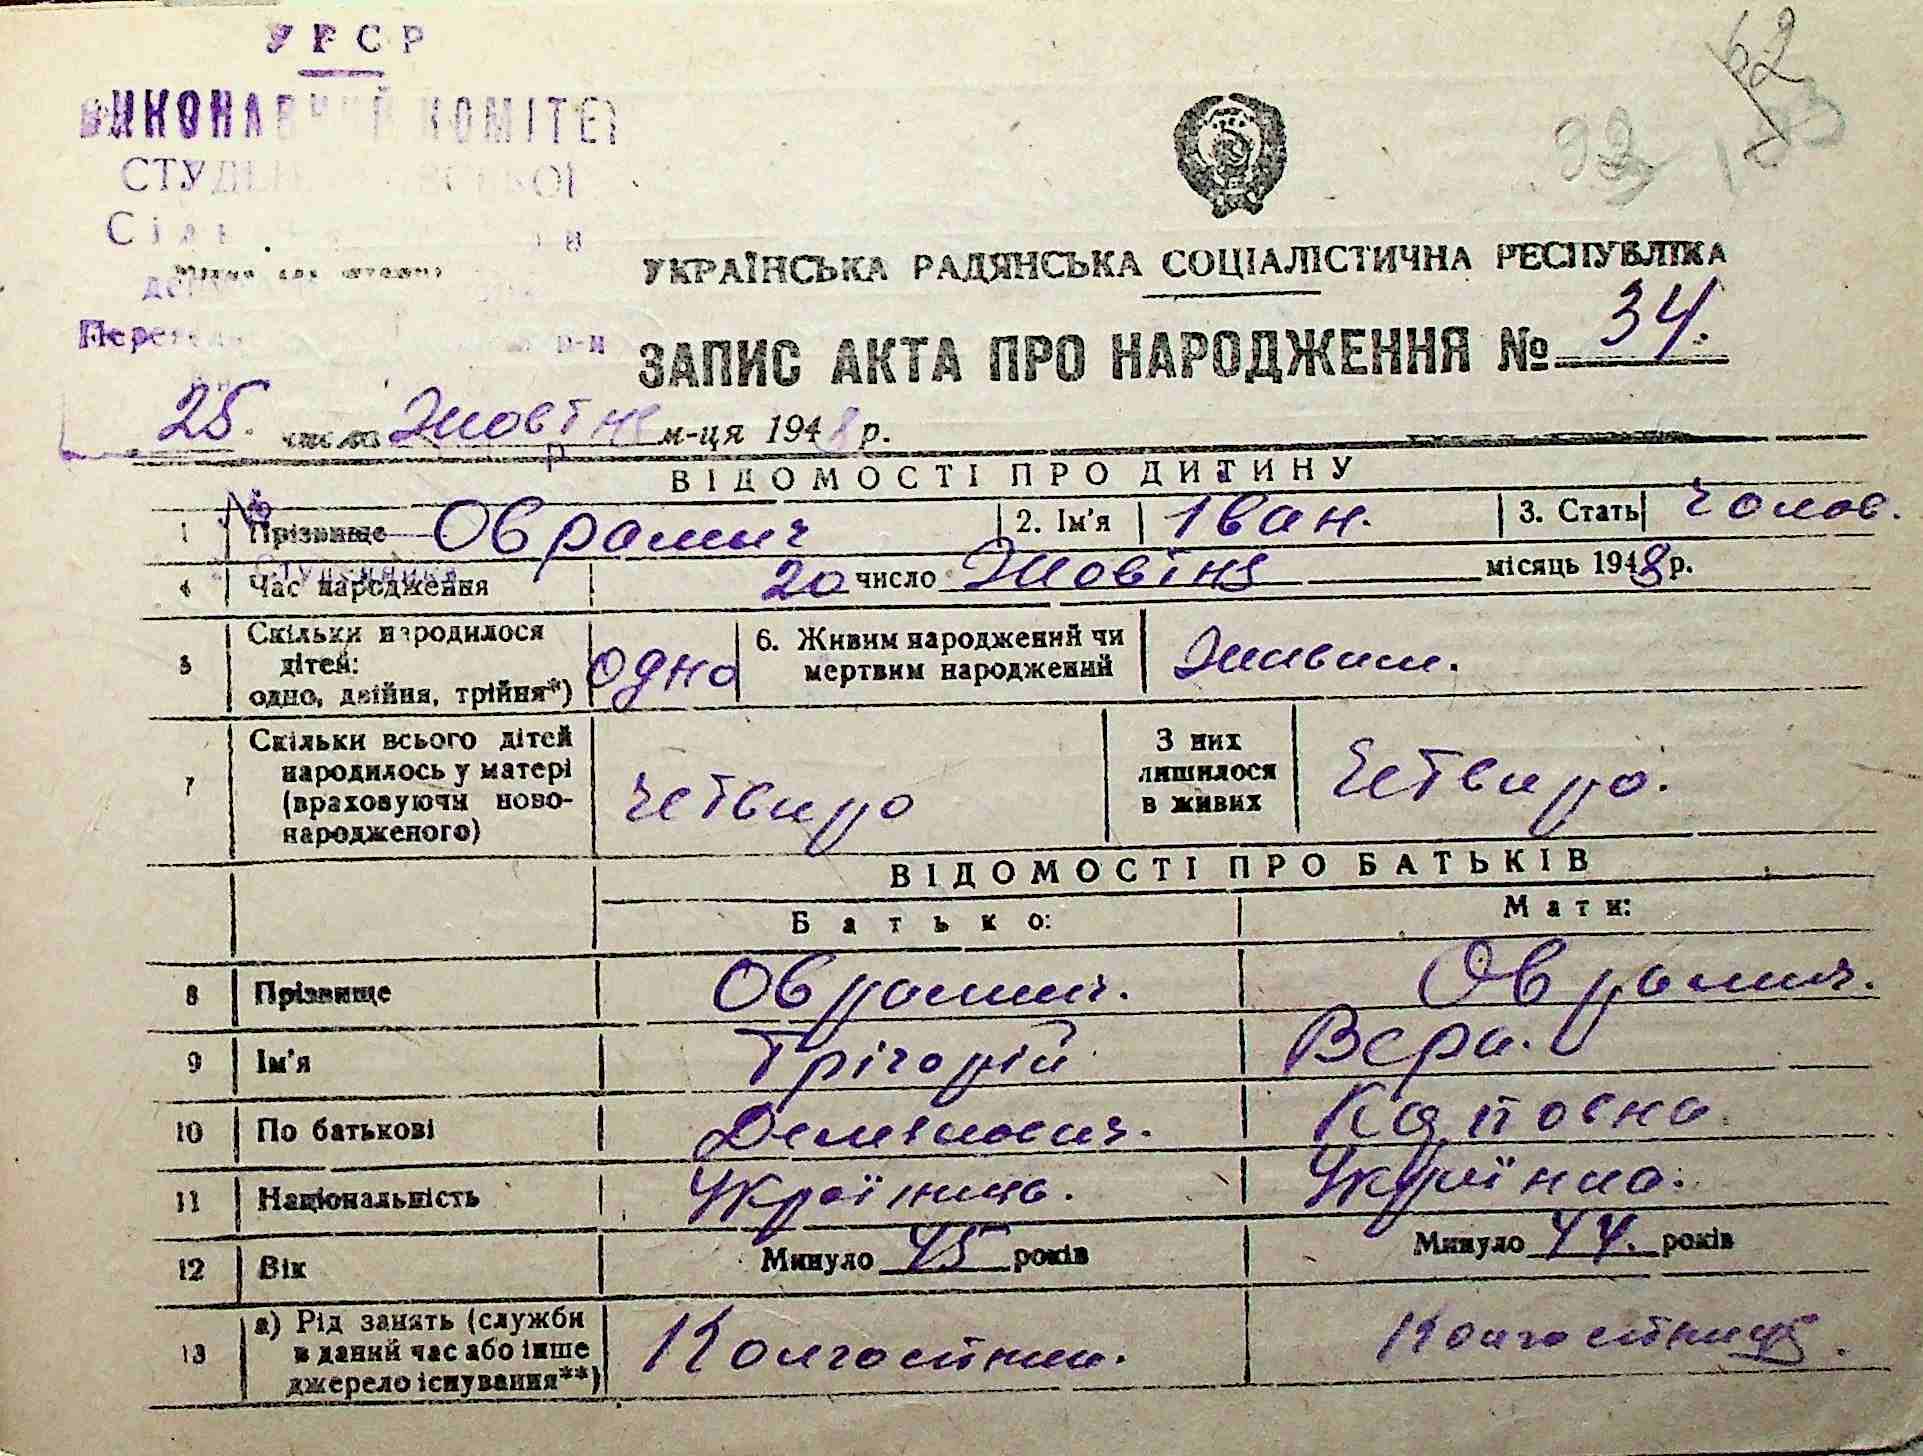 УРСР
ВИКОНАВЧИЙ КОМІТЕТ
62
УКРАЇНСЬКА РАДЯНСЬКА СОЦІАЛІСТИЧНА РЕСПУБЛІКА
ЗАПИС АКТА ПРО НАРОДЖЕННЯ № 34.
25. числа Жовтня м-ця 1948 р.
ВІДОМОСТІ ПРО ДИТИНУ
1 Прізвище Оврамич 2. Ім'я Іван. 3. Стать Чолов.
4 Час народження 20 число Жовтня місяць 1948 р.
5 Скільки народилося
дітей:
одно, двійня, трійня*) одно 6. Живим народжений чи
мертвим народжений Живим.
7 Скільки всього дітей
народилось у матері
(враховуючи ново-
народженого) Четверо З них
лишилося
в живих Четверо.
ВІДОМОСТІ ПРО БАТЬКІВ
Батько: Мати:
8 Прізвище Оврамич. Оврамич.
9 Ім'я Грігорій Вера.
10 По батькові
11 Національність Українць. Українка.
12 Вік Минуло 45 років Минуло 44. років
13 а) Рід занять (служби
в даний час або інше
джерело існування**) Колгоспник. Колгоспниця.